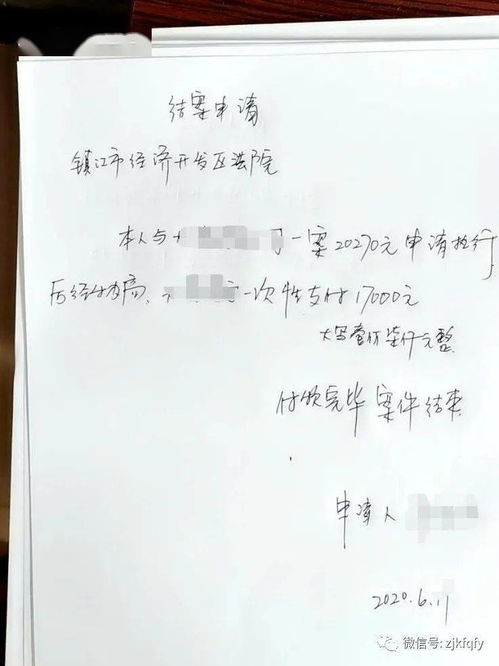 结案申请
镇江市经济开发区法院
本人与 一案20270元申请执行
后经 一次性支付17000元
大写壹仟柒仟元整
付款完毕 案件结束
申请人
2020.6.11
微信号: zjkfqfy